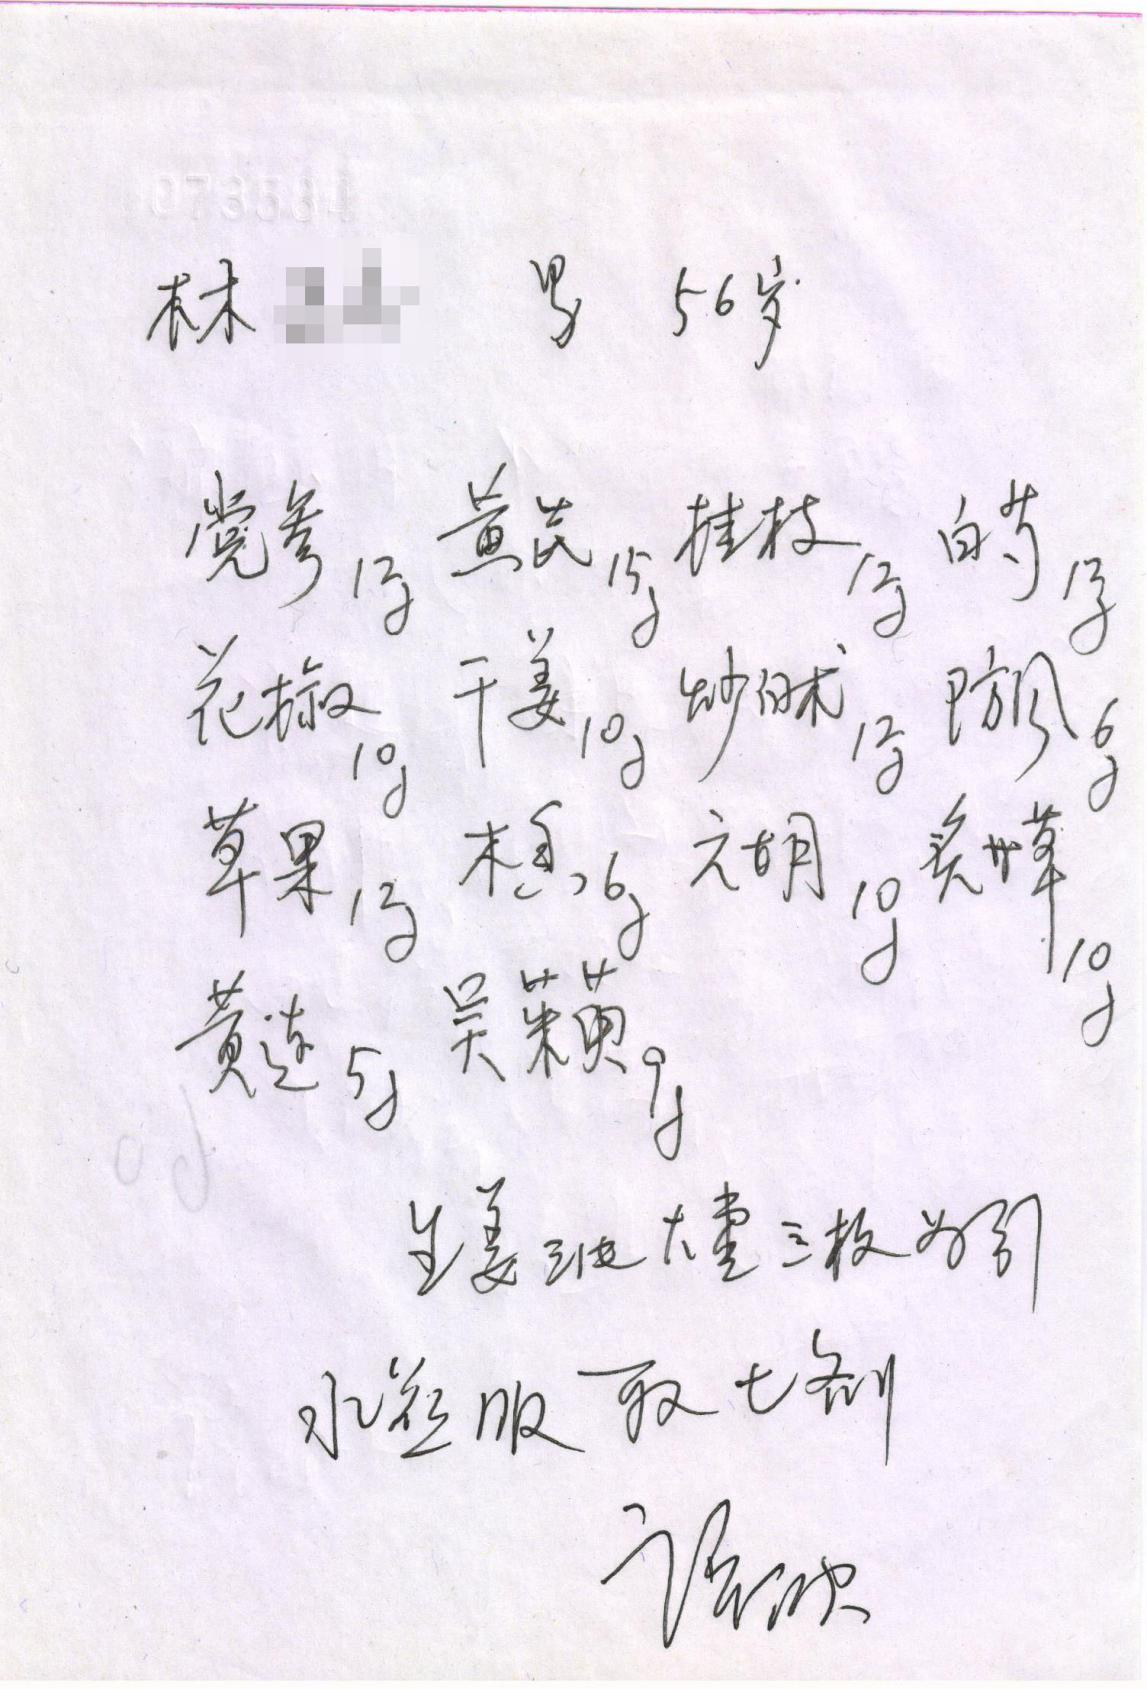 林 男 56岁
党参12g 黄芪15g 桂枝12g 白芍12g
花椒10g 干姜10g 炒白术12g 防风6g
草果12g 木香6g 元胡10g 炙甘草10g
黄连5g 吴茱萸9g
生姜三片大枣三枚为引
水煎服 取七剂